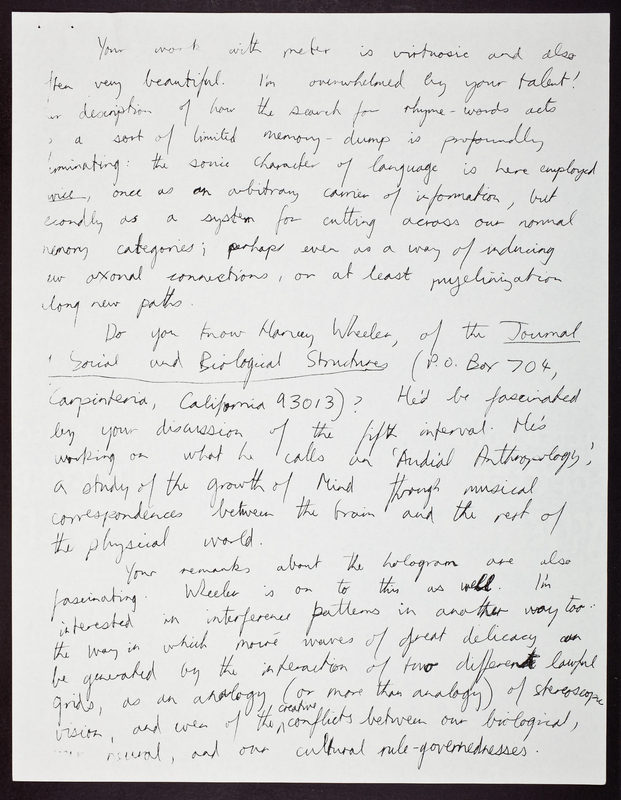 Your work with meter is virtuosic and also
ften very beautiful. I'm overwhelmed by your talent!
ur description of how the search for rhyme-words acts
s a sort of limited memory-dump is profoundly
uminating: the sonic character of language is here employed
wice, once as an arbitrary carrier of information, but
econdly as a system for cutting across our normal
memory categories; perhaps even as a way of inducing
ew axonal connections, or at least myelinization
along new paths.
Do you know Harvey Wheeler, of the Journal
Social and Biological Structures (P.O. Box 704,
Carpinteria, California 93013)? He'd be fascinated
by your discussion of the fifth interval. He's
working on what he calls an 'Audial Anthropology',
a study of the growth of Mind through musical
correspondences between the brain and the rest of
the physical world.
Your remarks about the hologram are also
fascinating. Wheeler is on to this as well. I'm
interested in interference patterns in another way too:
the way in which moiré waves of great delicacy can
be generated by the interaction of two different lawful
grids, as an analogy (or more than analogy) of stereoscopic
vision, and even of the creative conflicts between our biological,
neural, and our cultural rule-governednesses.